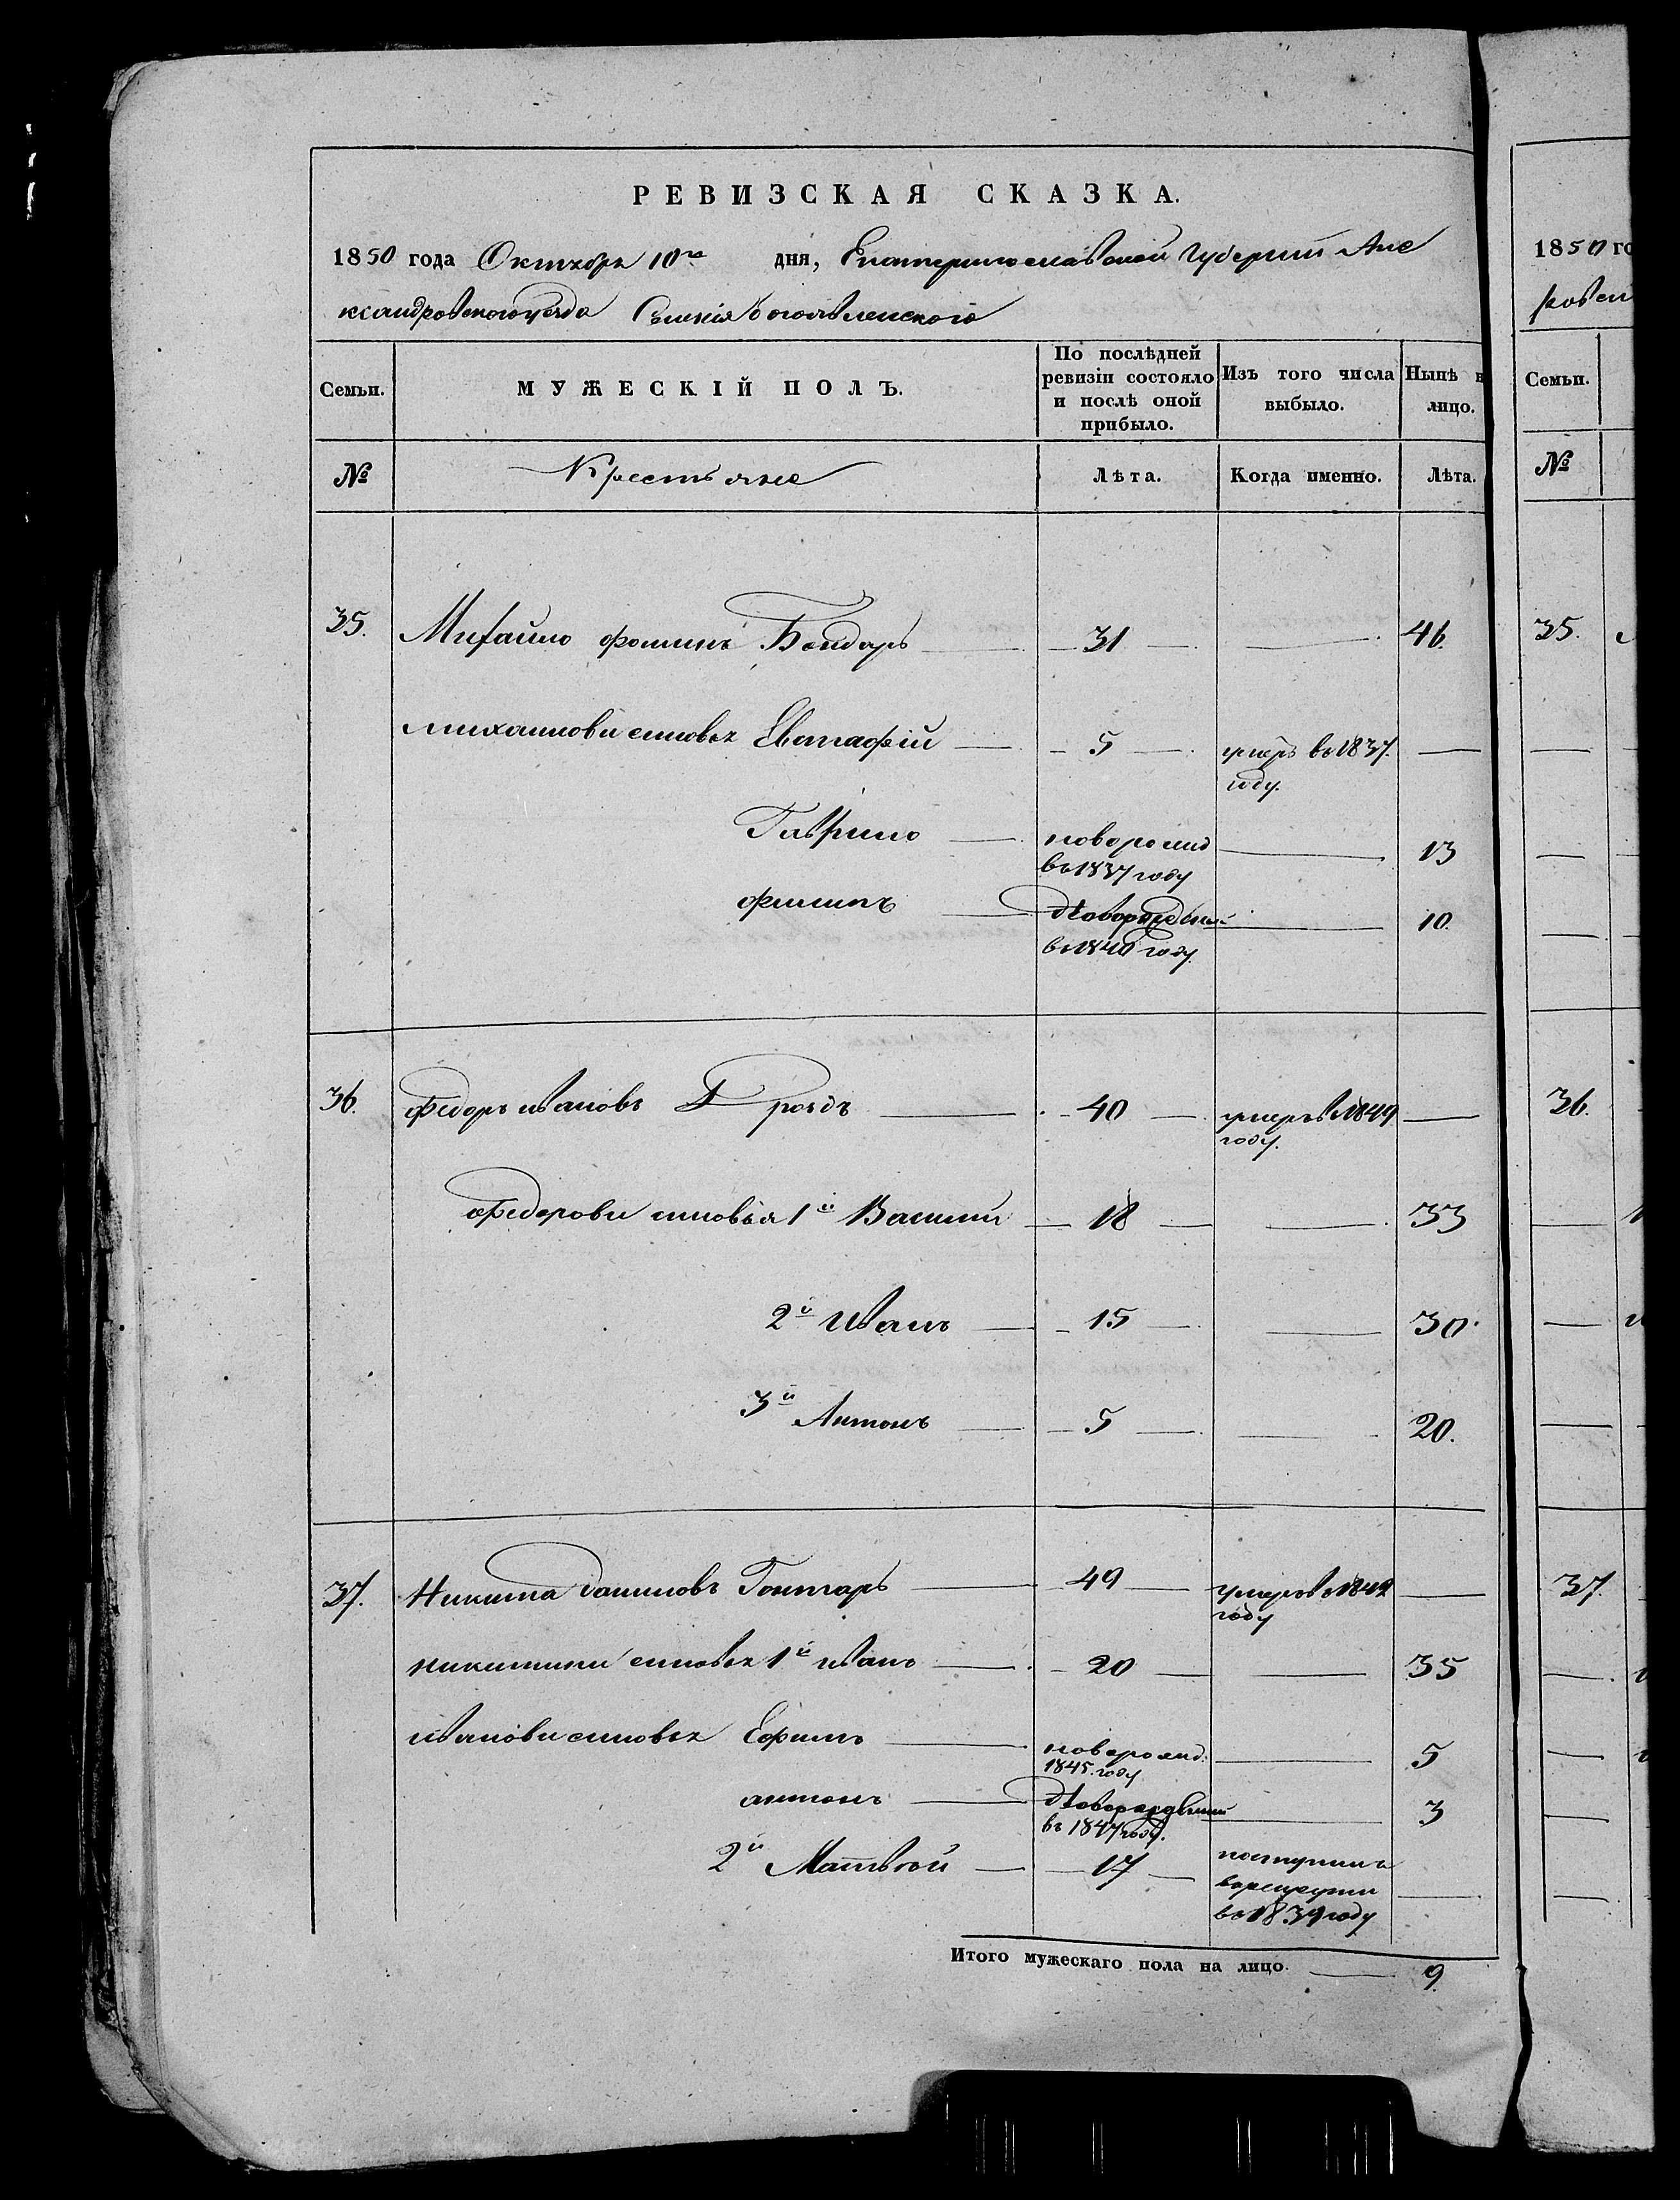 РЕВИЗСКАЯ СКАЗКА.
1850 года Октября 10го дня, Екатеринославской Губернии Але
ксандровского уезда Селенія Богоявленского
Семьи. МУЖЕСКІЙ ПОЛЪ. По послѣдней ревизіи состояло и послѣ оной прибыло. Изъ того числа выбыло. Нынѣ н лицо.
№ Крестьяне Лѣта. Когда именно. Лѣта.
35. Михайло Фоминъ Бондарь 31 46.
Михайлови синовья Евстафій 5 умеръ въ 1837. году.
Гаврило новорожд въ 1837 году 13
Филипъ Новорожденый въ 1840 году 10.
36. Федоръ Ивановъ Дроздъ 40 умеръ в 1849 году.
Федорови синовья 1й Василий 18 33
2й Иванъ 15 30.
3й Антонъ 5 20.
37. Никита Даниловъ Гончаръ 49 умеръ в 1849 году
Никитини синовья 1й Иванъ 20 35
Иванови синовья Ефимъ новорожд. 1845. году 5
Антонъ въ 1847 году. 3
2й Матвей 17 поступилъ в рекруты в 1839 году
Итого мужескаго пола на лицо. 9.
1850 го
ровен
Семьи.
№
35.
36.
37.